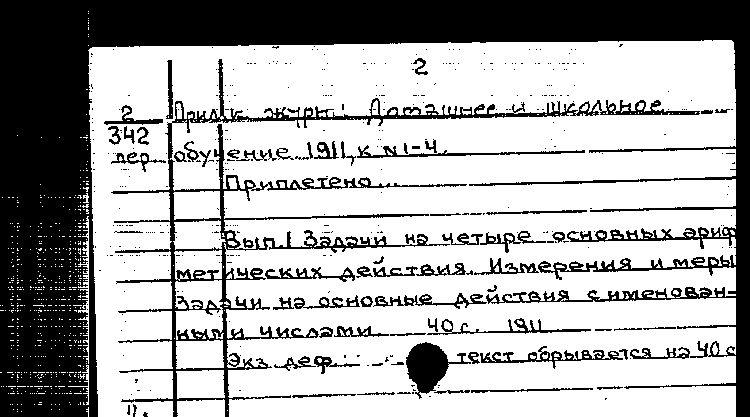 2
2 Прил. к журн.: Домашнее и школьное
342
пер. обучение 1911, к N 1-4.
Приплетено...
Вып. 1 Задачи на четыре основных ариф
метических действия. Измерения и меры
Задачи на основные действия с именован-
ными числами. 40 с. 1911
Экз. деф.: текст обрывается на 40 с